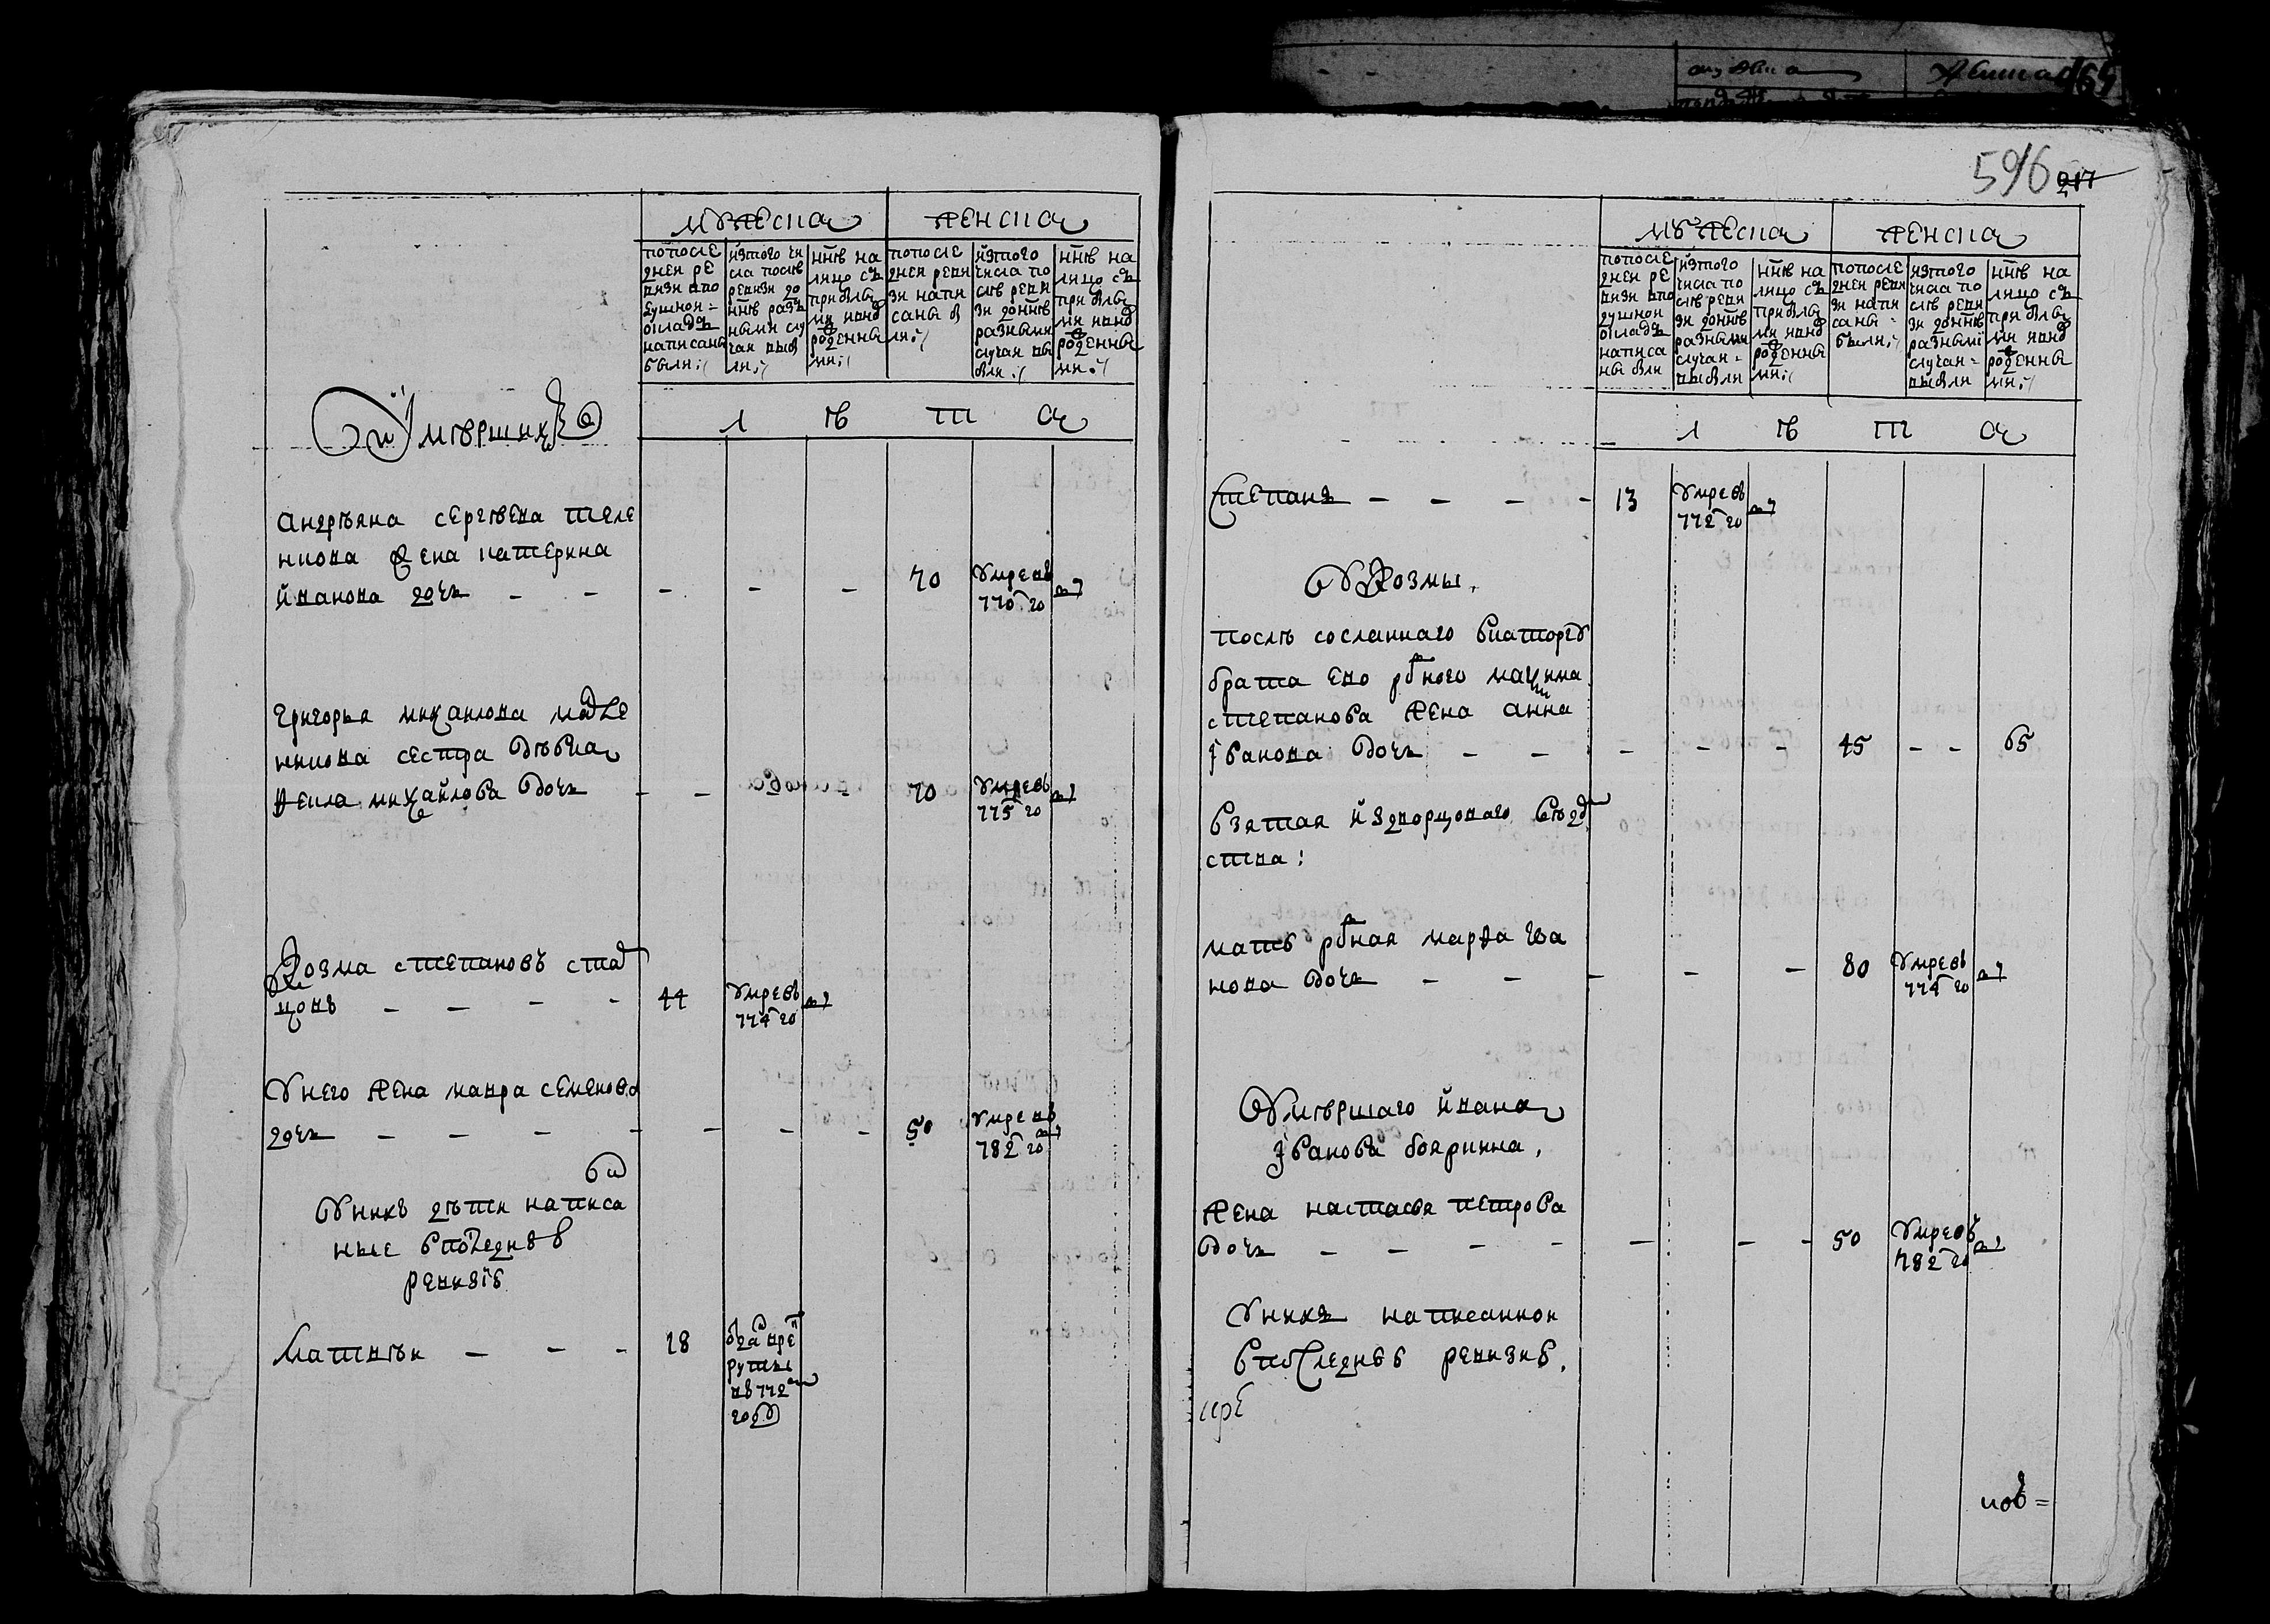 мужеска
женска
по после
дней ре
визи в по
душной =
окладъ
написаны
были
изтого чи
сла после
ревизи до
ннѣ разъ
ными слу
чаи выб
ли
ннѣ на
лицо съ
прибылы
ми и вно
рожденны
ми
по после
дней реви
зи напи
саны б
ли
изтого
числа по
слѣ реви
зи доннѣ
разными
случаи вы
были
ннѣ на
лицо съ
прибылы
ми и вно
рожденны
ми
л ѣ т а
умершихъ
Андрѣяна сергѣева теле
гнкова жена катерина
Иванова дочь — —
— — — 70
умре въ
770 го
Григорья михаилова
сестра дѣвка
михайлова дочь
— — — 70
умре въ
775 го
Козма степановъ
цовъ — — — —
44
умре въ
774 го
У него жена мавра семенова
дочь — — — — — — — 50
умре въ
782 го
У нихъ дѣти написа
ные в последней
ревизіи
Матвѣи — — — 18
в рекруты
въ 772м
году
596 217
мужеска
женска
по после
дней ре
визи в по
душной
окладъ
написа
ны были
изтого
числа по
слѣ реви
зи доннѣ
разными
случаи =
выбыли
ннѣ на
лицо съ
прибылы
ми и вно
рожденны
ми
по после
дней реви
зи напи
саны =
были
изтого
числа по
слѣ реви
зи доннѣ
разными
случаи =
выбыли
ннѣ на
лицо съ
прибылы
ми и вно
рожденны
ми
л ѣ т а
Степанъ — — — — 13
умре въ
772 го
У Козмы
послѣ сосланнаго в каторгу
брата ево рднаго максима
степанова жена анна
Іванова дочь — — — — — 45 — — 65
взятая из дворцоваго вѣд
ства:
мать рдная марфа ива
нова дочь — — — — — 80
умре въ
774 го
Умершаго ивана
Іванова бояркина,
жена настасья петрова
дочь — — — — — — — 50
умре въ
782 го
У нихъ написанной
в последней ревизии,